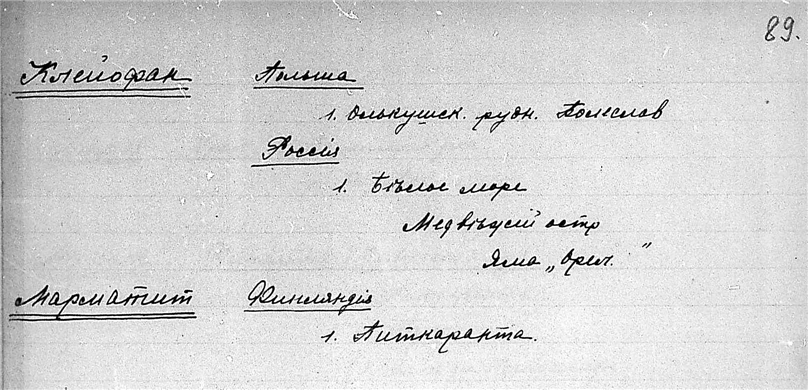 89.
Клейофан Польша
1. Олькушск. рудн. Болеслов
Россія
1. Бѣлое море
Медвѣжій остр
Яма „Орел."
Марматит Финляндія
1. Питкаранта.